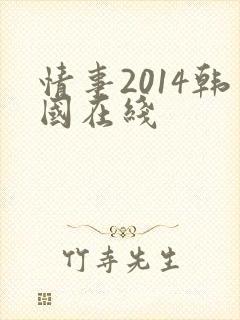 情事2014韩
國在綫
竹寺先生